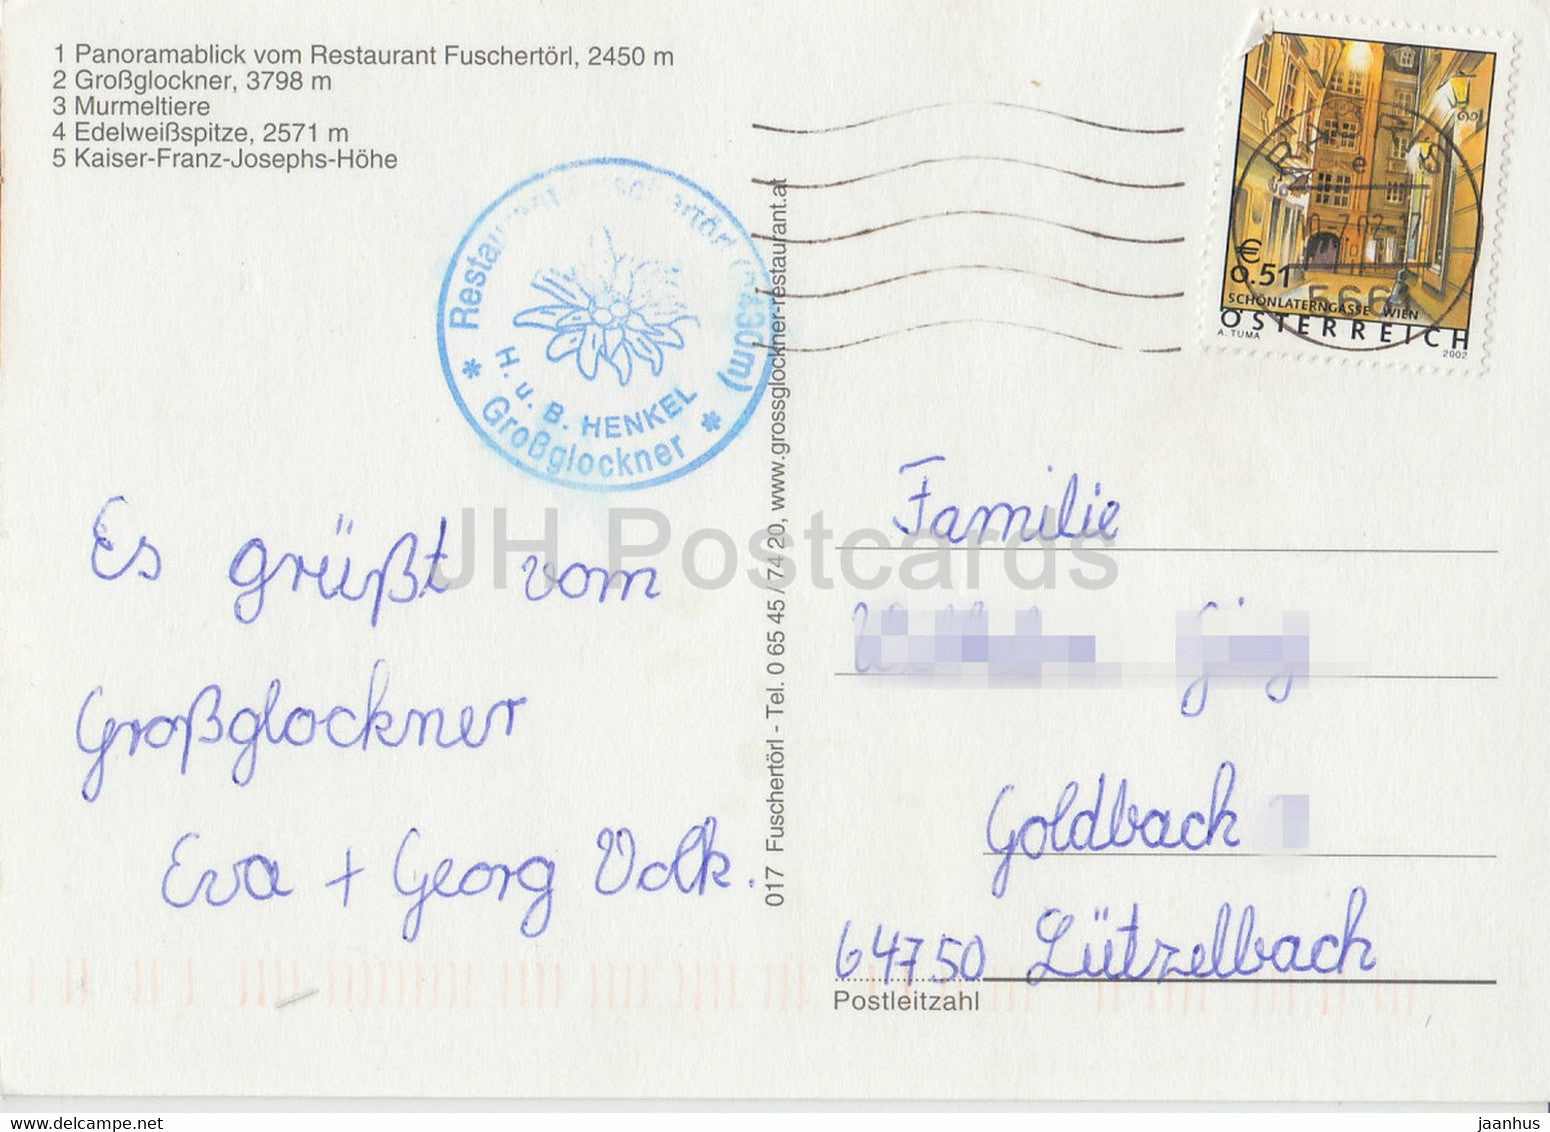 1 Panoramablick vom Restaurant Fuschertörl, 2450 m
2 Großglockner, 3798 m
3 Murmeltiere
4 Edelweißspitze, 2571 m
5 Kaiser-Franz-Josephs-Höhe
Restaurant
H. u. B. HENKEL
* Großglockner *
017 Fuschertörl - Tel. 0 65 45 / 74 20, www.grossglockner-restaurant.at
€ 0.51
SCHÖNLATERNGASSE WIEN
ÖSTERREICH
A. TUMA
2002
5661
Es grüßt vom
Großglockner
Eva + Georg Volk.
Familie
Goldbach
64750 Lützelbach
Postleitzahl
JH Postcards
hip.com
jaanhus